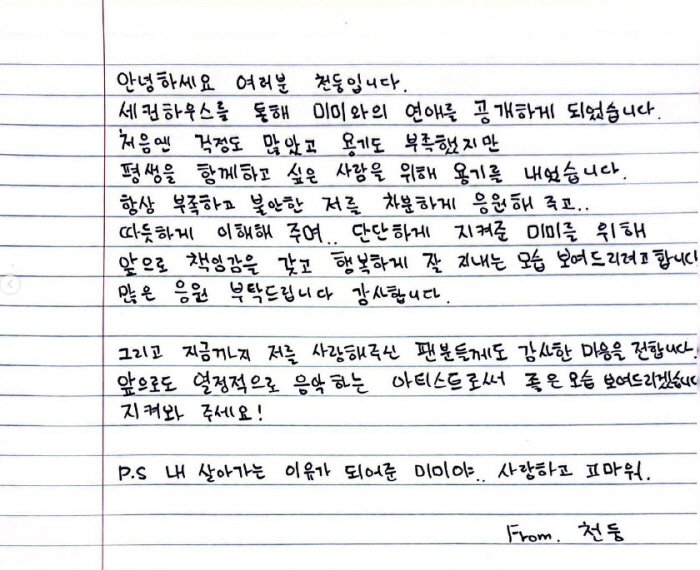 안녕하세요 여러분 천둥입니다.
세컨하우스를 통해 미미와의 연애를 공개하게 되었습니다.
처음엔 걱정도 많았고 용기도 부족했지만
평생을 함께하고 싶은 사람을 위해 용기를 내었습니다.
항상 부족하고 불안한 저를 차분하게 응원해 주고..
따듯하게 이해해 주며.. 단단하게 지켜준 미미를 위해
앞으로 책임감을 갖고 행복하게 잘 지내는 모습 보여드리려고합니다
많은 응원 부탁드립니다 감사합니다.
그리고 지금까지 저를 사랑해주신 팬분들께도 감사한 마음을 전합니다.
앞으로도 열정적으로 음악하는 아티스트로써 좋은모습 보여드리겠습니다
지켜봐 주세요!
P.S 내 살아가는 이유가 되어준 미미야.. 사랑하고 고마워.
From. 천둥